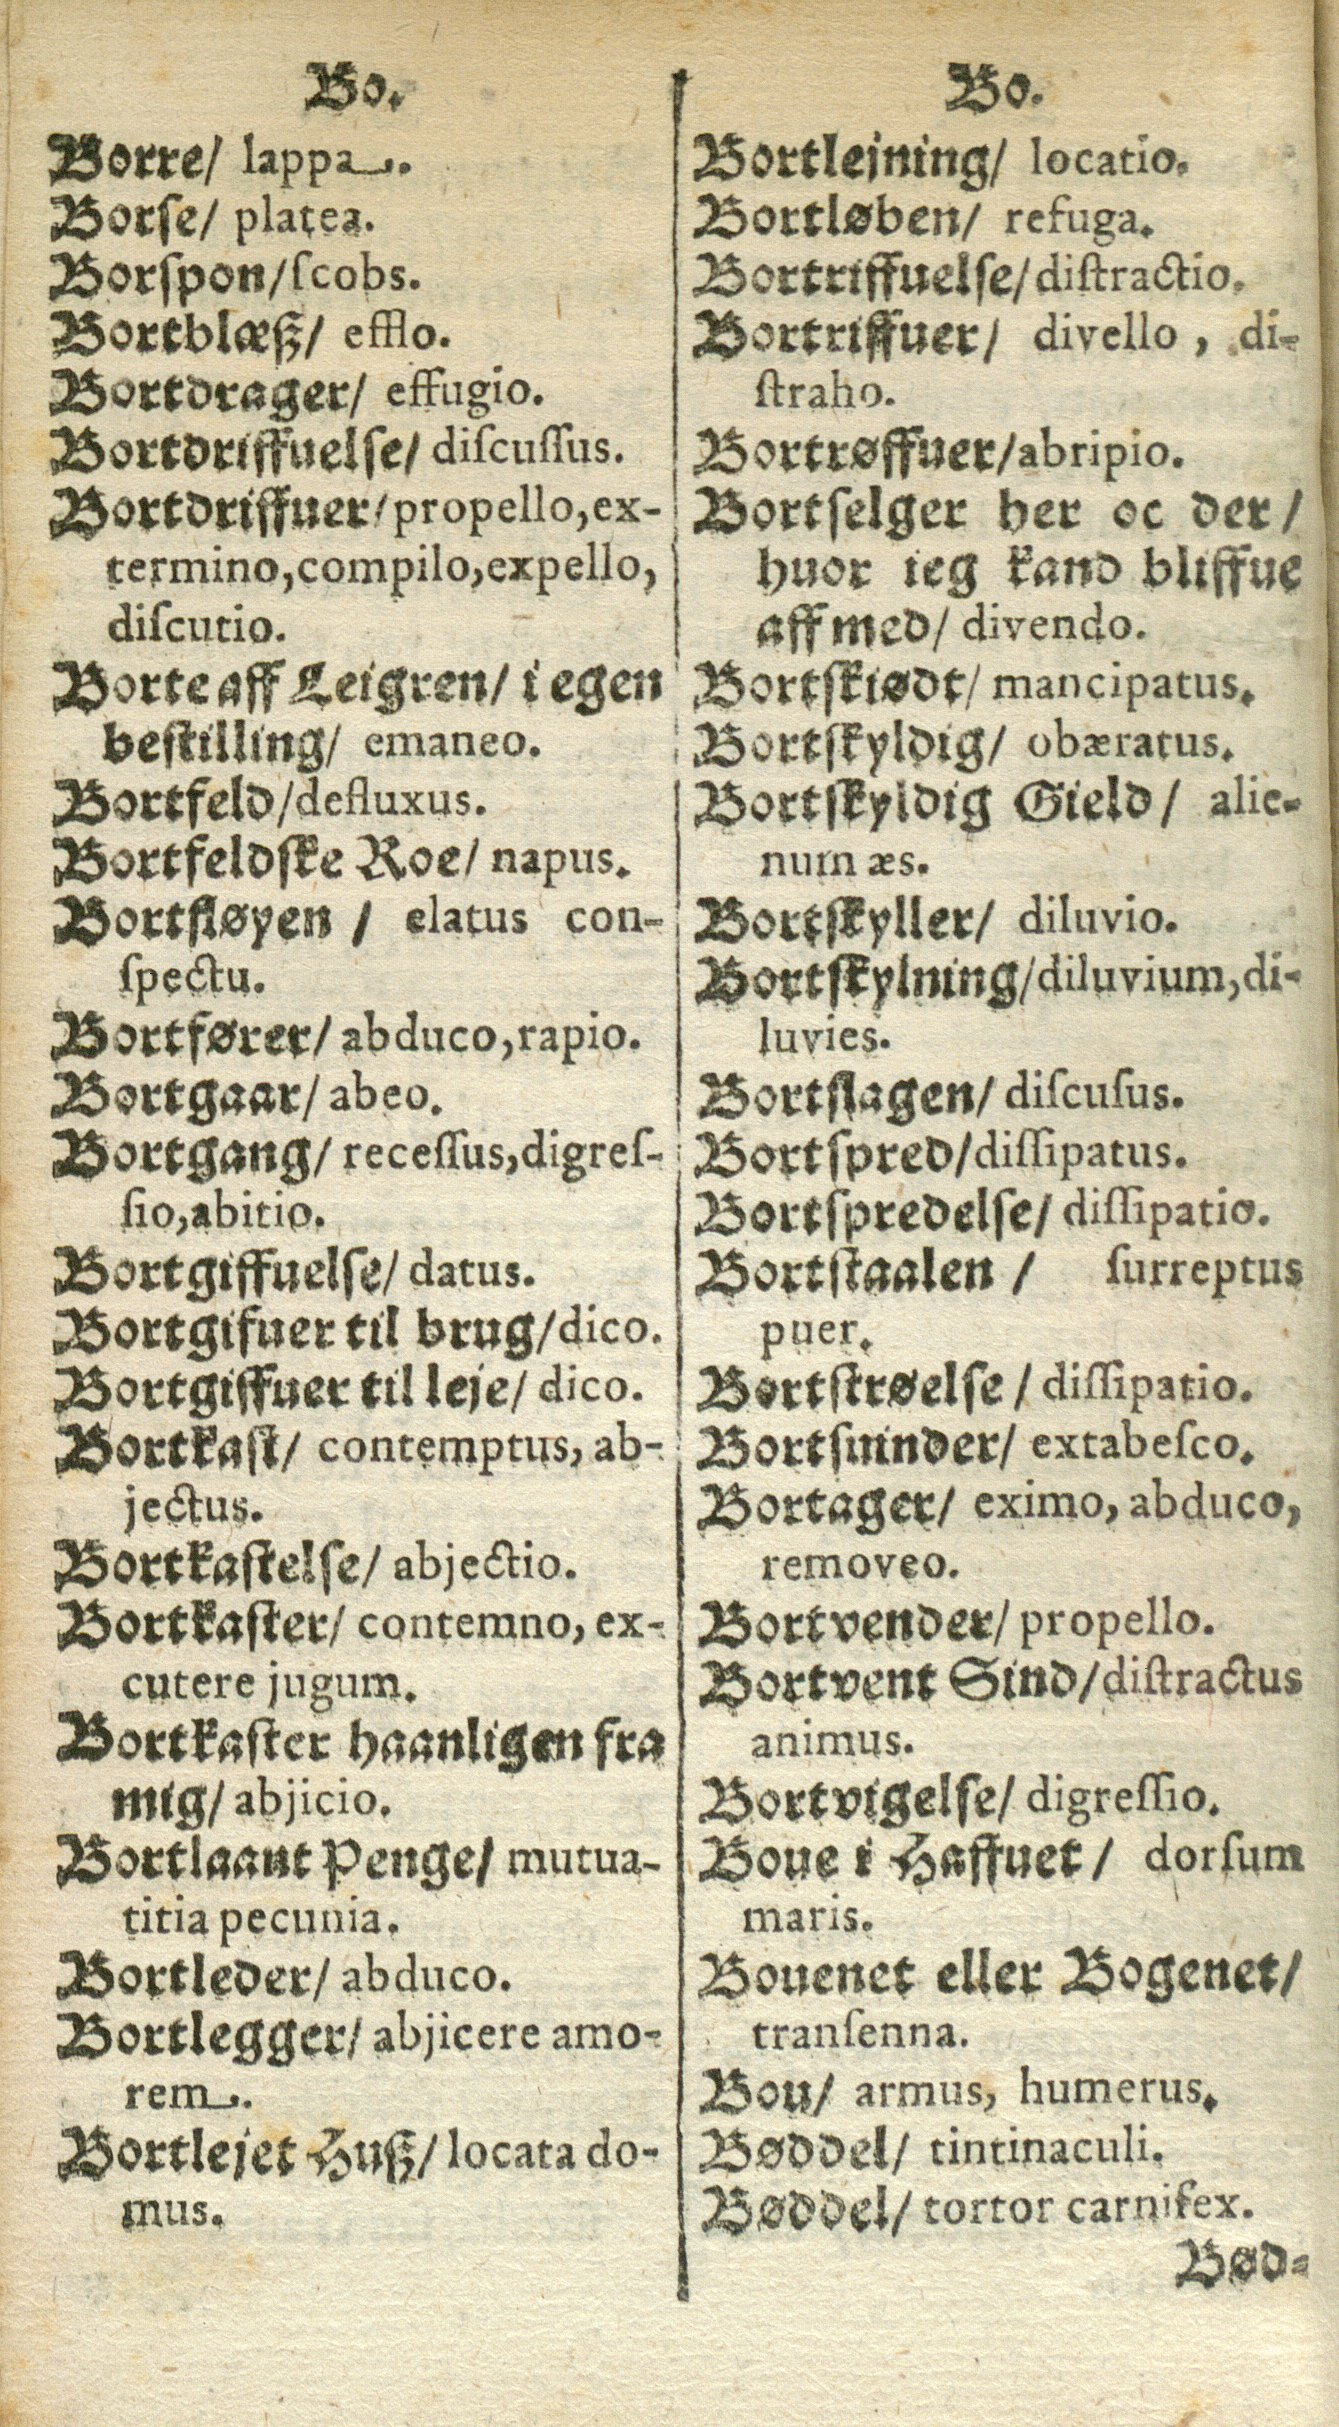 Bo.
Borre/ lappa.
Borſe/ platea.
Borſpon/ſcobs.
Bortblæß/ efflo.
Bortdrager/ effugio.
Bortdriffuelſe/ diſcuſſus.
Bortdriffuer/propello,ex-
termino,compilo,expello,
diſcutio.
Borte aff Leigren/ i egen
beſtilling/ emaneo.
Bortfeld/defluxus.
Bortfeldſke Roe/ napus.
Bortfløyen / elatus con-
ſpectu.
Bortfører/ abduco,rapio.
Bortgaar/ abeo.
Bortgang/ receſſus,digreſ-
ſio,abitio.
Bortgiffuelſe/ datus.
Bortgifuer til brug/dico.
Bortgiffuer til leje/ dico.
Bortkaſt/ contemptus, ab-
jectus.
Bortkaſtelſe/ abjectio.
Bortkaſter/ contemno, ex-
cutere jugum.
Bortkaſter haanligen fra
mig/ abjicio.
Bortlaant Penge/ mutua-
titia pecunia.
Bortleder/ abduco.
Bortlegger/ abjicere amo-
rem.
Bortlejet Huß/ locata do-
mus.
Bo.
Bortlejning/ locatio.
Bortløben/ refuga.
Bortriffuelſe/diſtractio.
Bortriffuer/ divello, di-
ſtraho.
Bortrøffuer/abripio.
Bortſelger her oc der/
huor ieg kand bliffue
aff med/ divendo.
Bortſkiødt/ mancipatus.
Bortſkyldig/ obæratus.
Bortſkyldig Gield/ alie-
num æs.
Bortſkyller/ diluvio.
Bortſkylning/diluvium,di-
luvies.
Bortſlagen/ diſcuſus.
Bortſpred/diſſipatus.
Bortſpredelſe/ diſſipatio.
Bortſtaalen / ſurreptus
puer.
Bortſtrøelſe/ diſſipatio.
Bortſuinder/ extabeſco.
Bortager/ eximo, abduco,
removeo.
Bortvender/ propello.
Bortvent Sind/diſtractus
animus.
Bortvigelſe/ digreſſio.
Boue i Haffuet/ dorſum
maris.
Bouenet eller Bogenet/
tranſenna.
Bou/ armus, humerus.
Bøddel/ tintinaculi.
Bøddel/ tortor carnifex.
Bød-